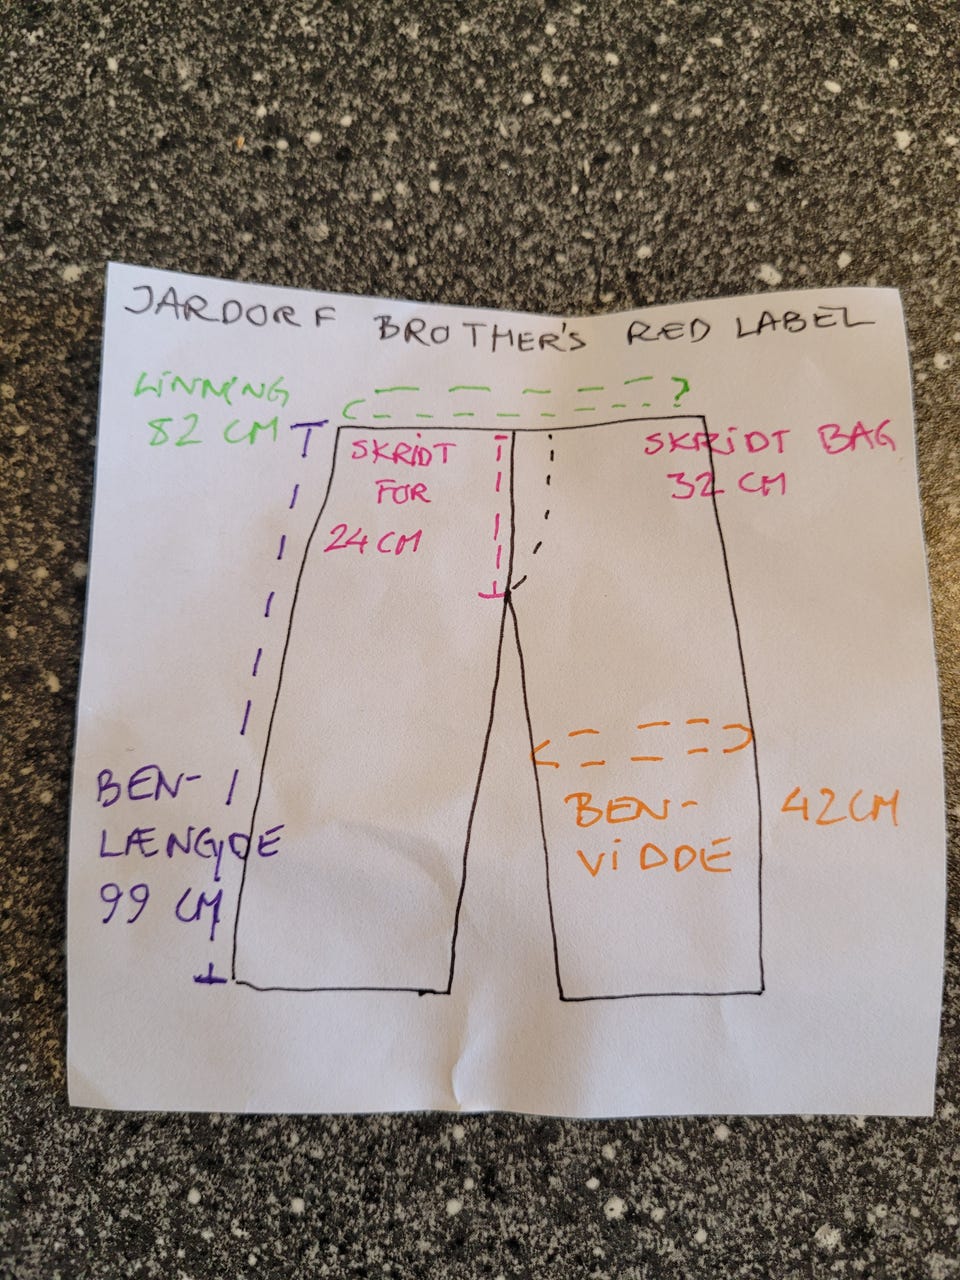 JARDORF BROTHER'S RED LABEL
LINNING
82 CM
SKRIDT
FOR
24 CM
SKRIDT BAG
32 CM
BEN-
LÆNGDE
99 CM
BEN-
VIDDE
42 CM